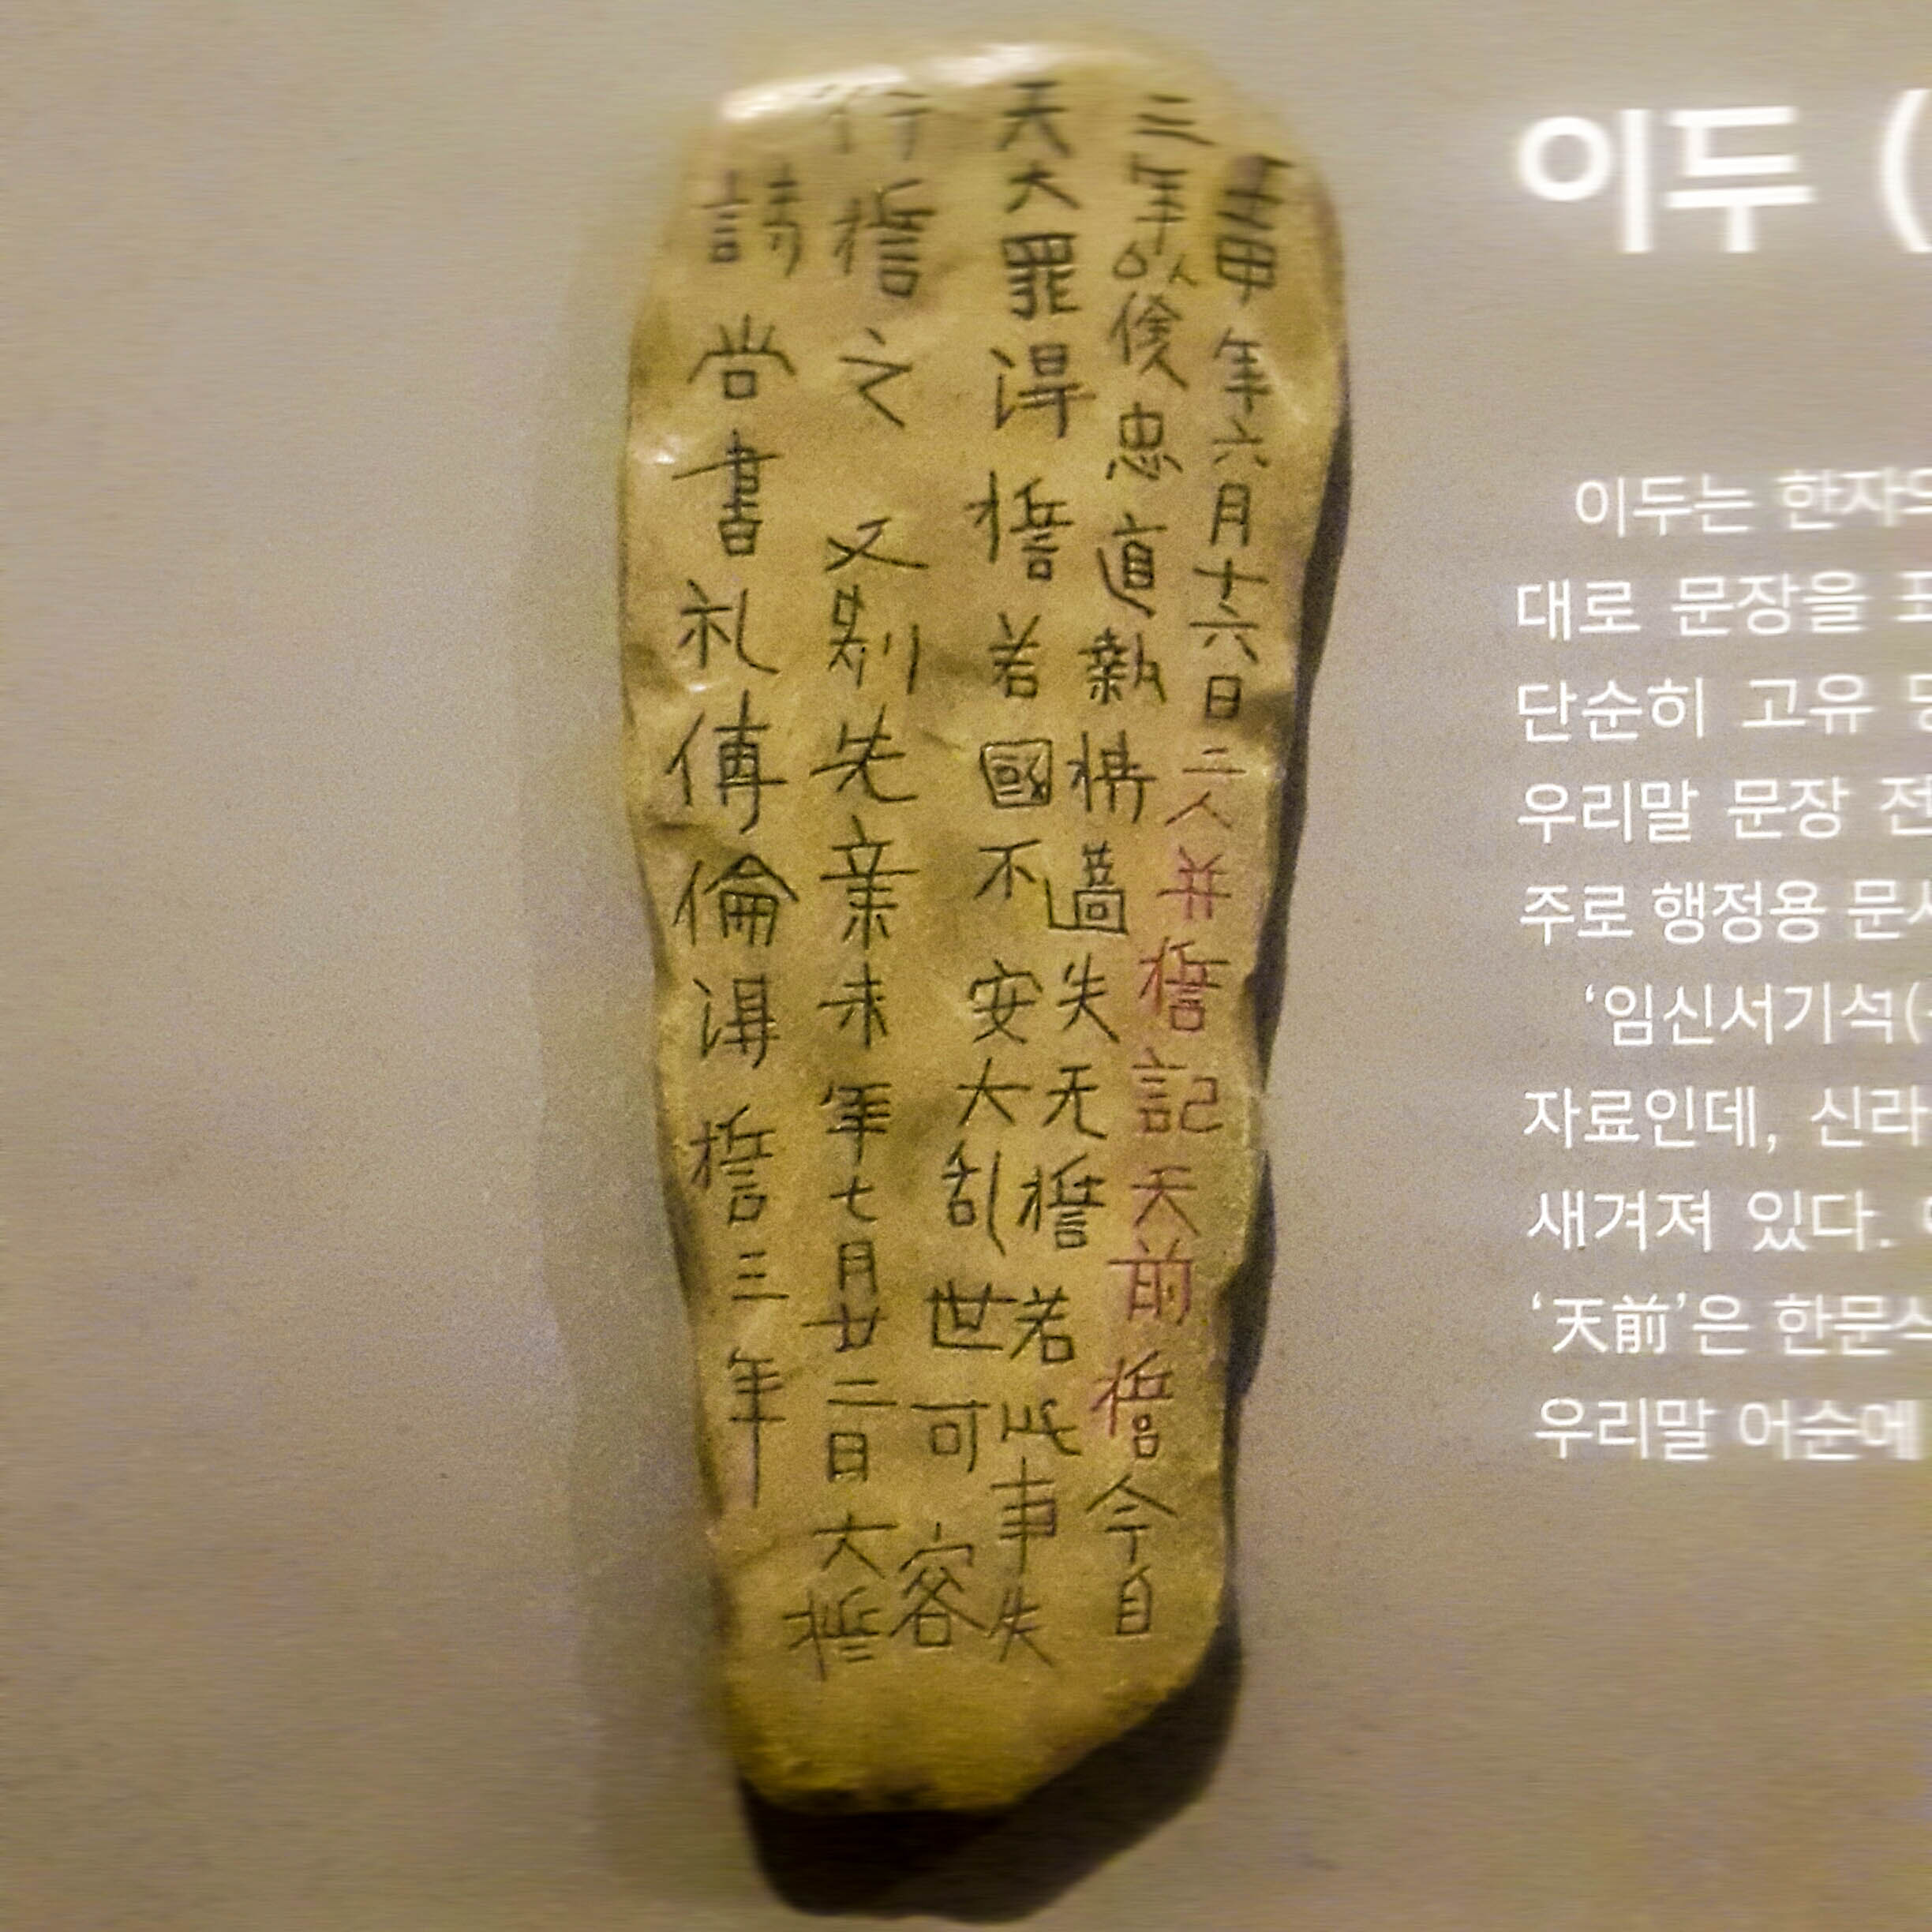 壬申年六月十六日二人并誓記天前誓今自
三年以後忠道執持過失无誓若此事失
天大罪淂誓若國不安大乱世可容
行誓之 又別先辛未年七月廿二日大誓
詩尚書礼傳倫淂誓三年
이두 (
이두는 한자의
대로 문장을
단순히 고유
우리말 문장 전
주로 행정용 문서
‘임신서기석(
자료인데, 신라
새겨져 있다.
‘天前’은 한문식
우리말 어순에